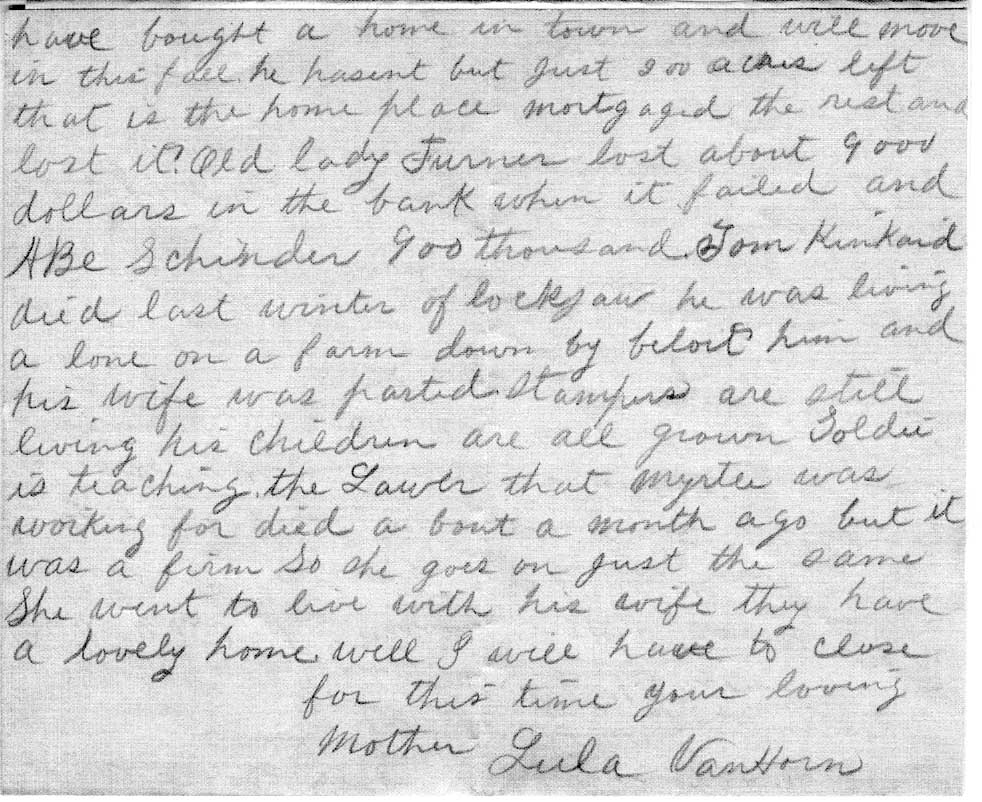 have bought a home in town and will move
in this fall. he hasent but just 200 acres left
that is the home place mortgaged the rest and
lost it. Old lady Turner lost about 9000
dollars in the bank when it failed and
ABe Schinder 900 thousand. Tom Kinkaid
died last winter of lockjaw he was living
a lone on a farm down by beloit him and
his wife was parted. Stampers are still
living his children are all grown Goldie
is teaching. the Lawer that myrtle was
working for died a bout a month ago but it
was a firm So she goes on just the same
She went to live with his wife they have
a lovely home. well I will have to close
for this time your loving
Mother Lula VanHorn